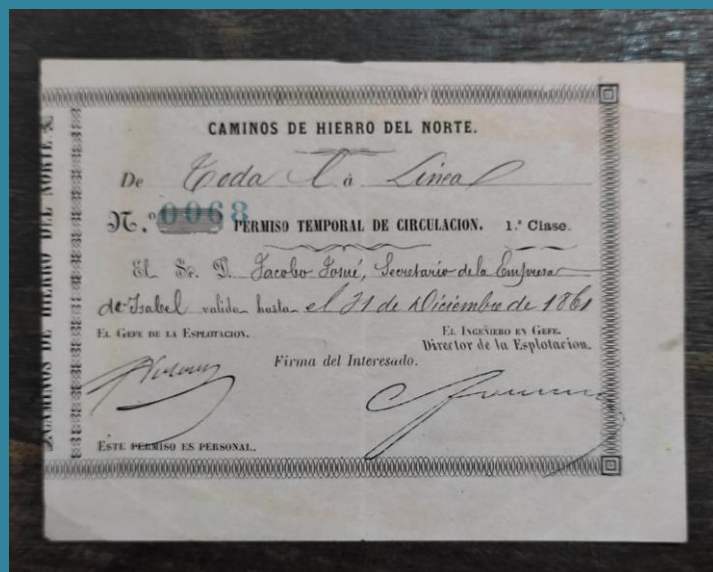 CAMINOS DE HIERRO DEL NORTE.
De Toda L á Linea
N.º 0068 PERMISO TEMPORAL DE CIRCULACION. 1.ª Clase.
El Sr. D. Jacobo Josué, Secretario de la Empresa
de Isabel valido hasta el 31 de Diciembre de 1861
EL GEFE DE LA ESPLOTACION.
EL INGENIERO EN GEFE.
Director de la Esplotacion.
Firma del Interesado.
ESTE PERMISO ES PERSONAL.
CAMINOS DE HIERRO DEL NORTE